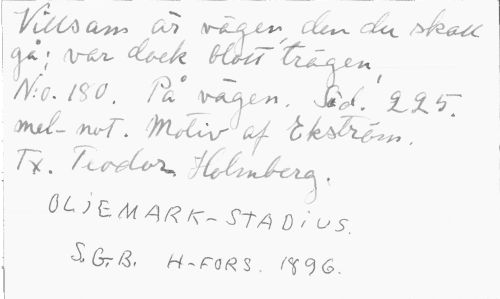 Villsam är vägen, den du skall
gå; var dock blott trägen,
N:o. 180. På vägen. Sid. 225.
mel-not. Motiv af Ekström.
Tx. Teodor Holmberg.
OLJEMARK-STADIUS.
S.G.B. H-FORS. 1896.